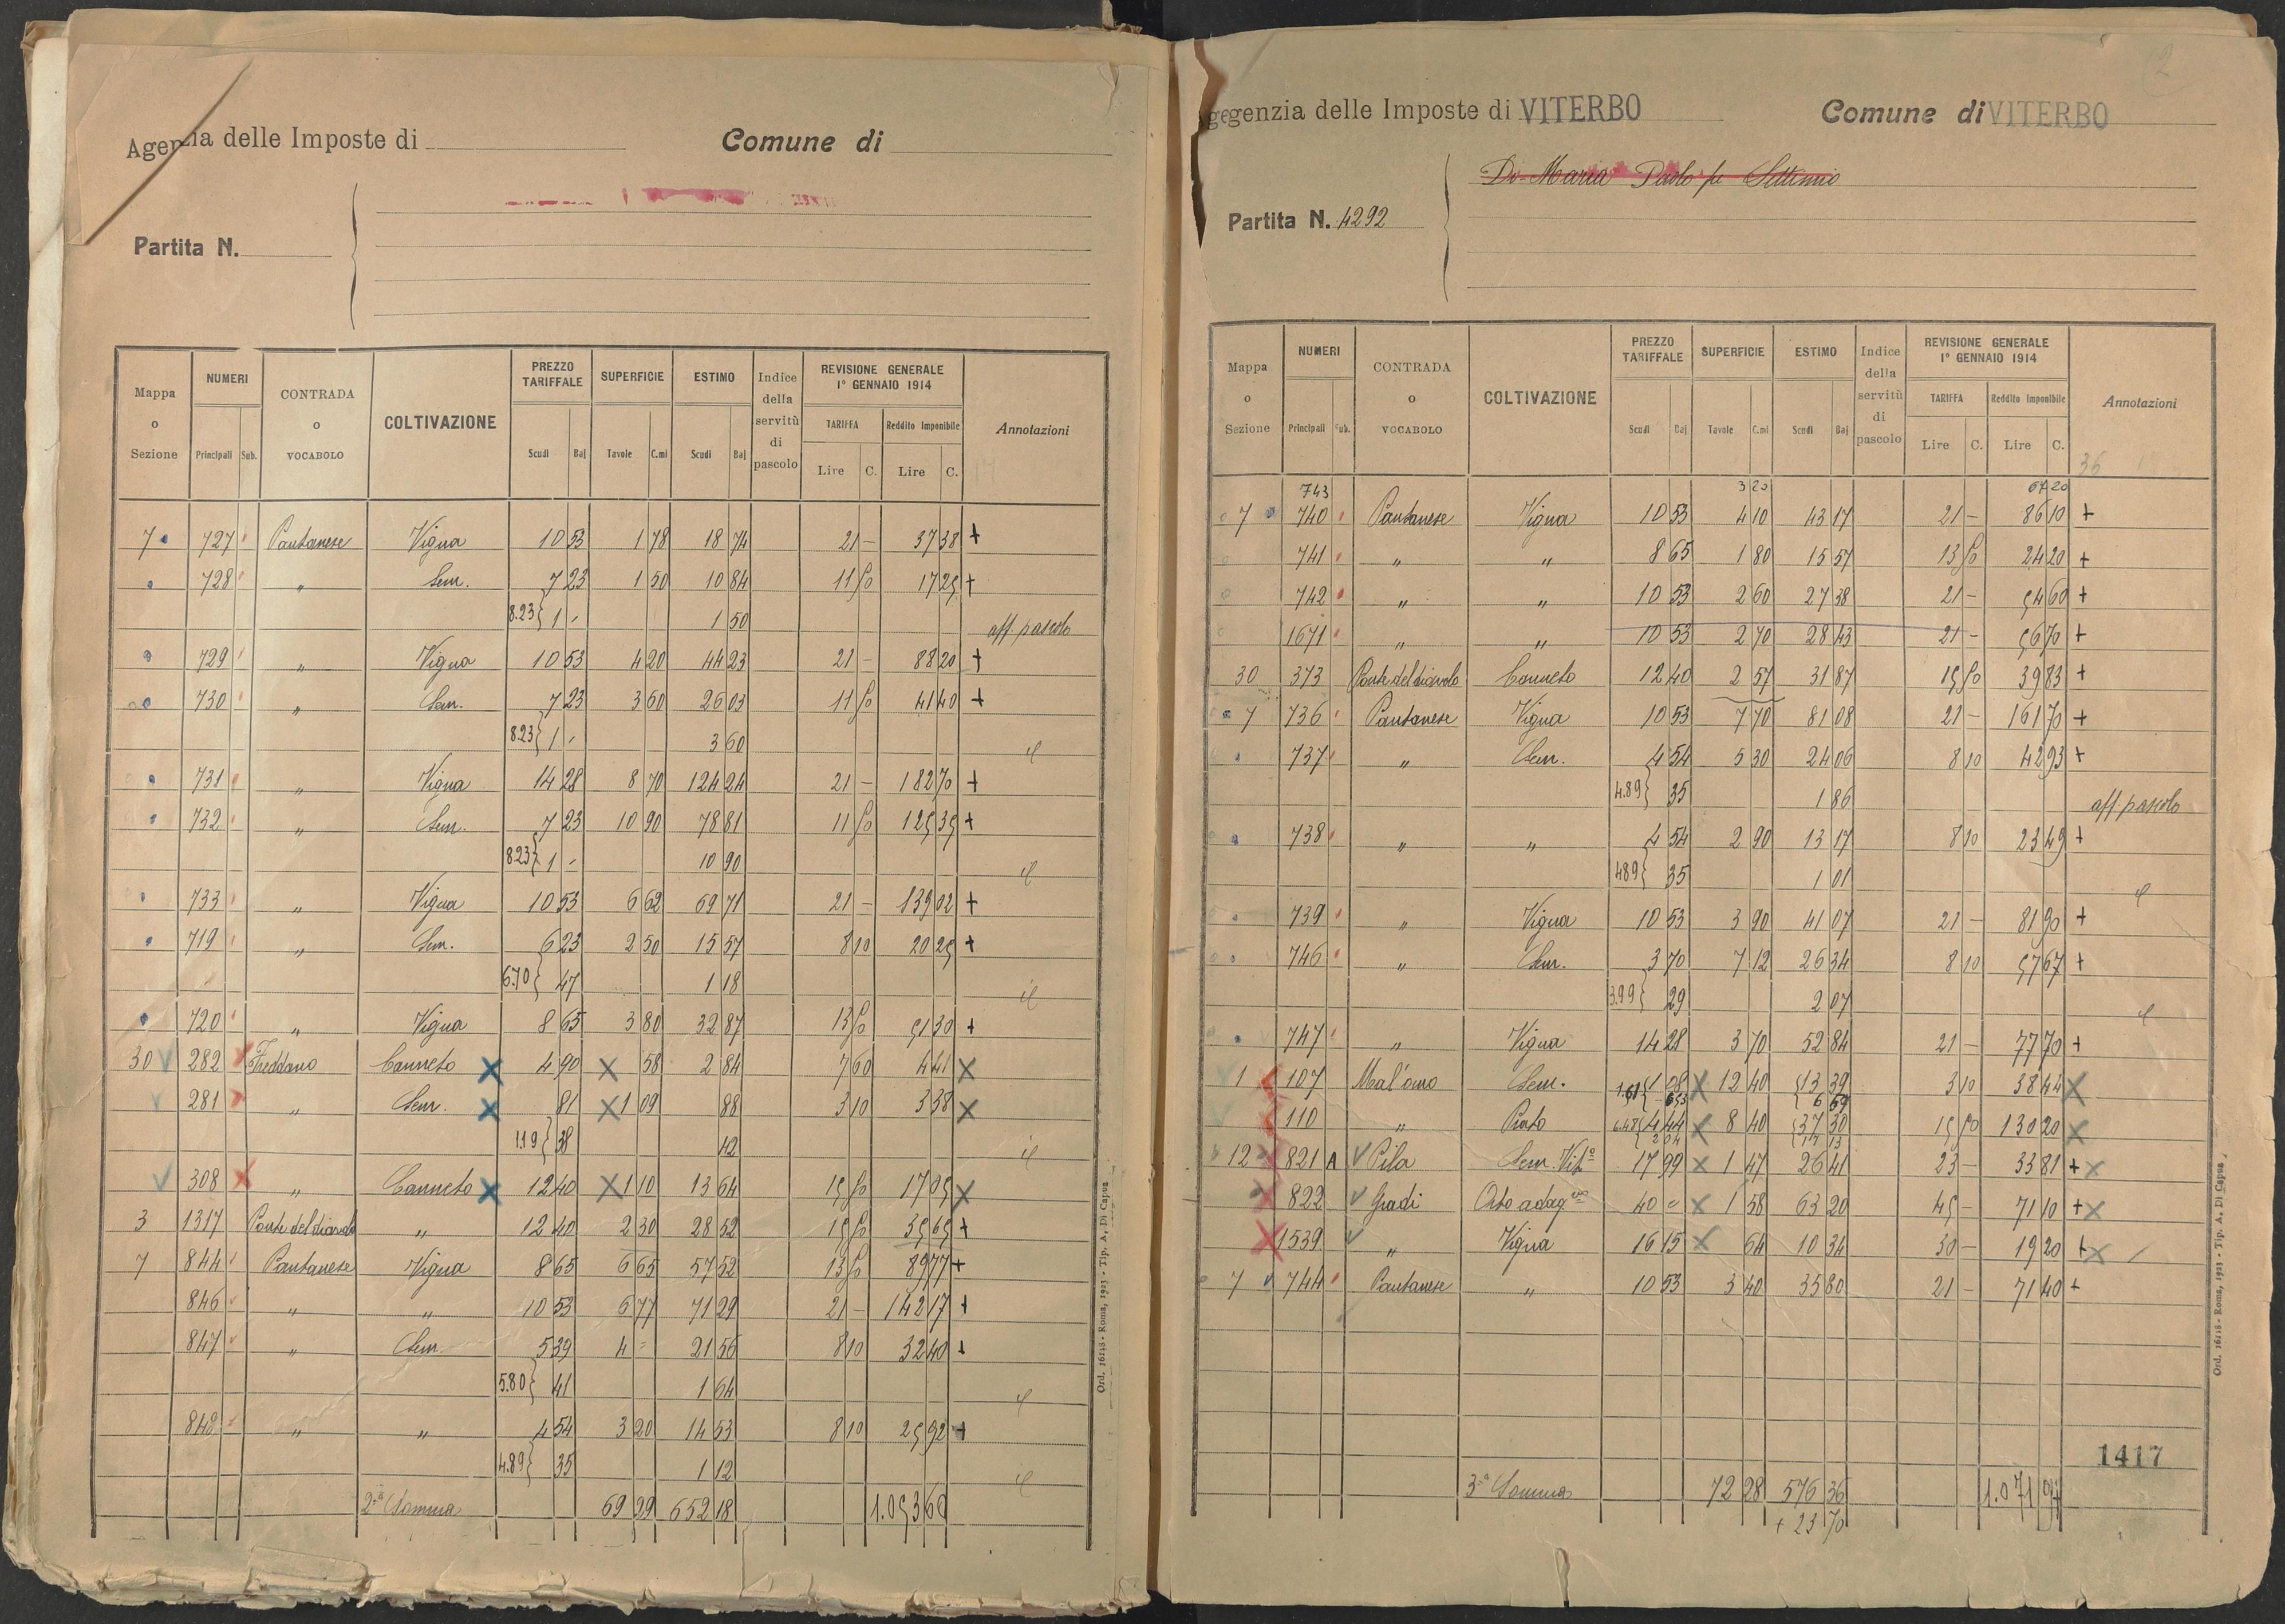 Agenzia delle Imposte di
Comune di
Partita N.
Mappa o Sezione | NUMERI Principali Sub. | CONTRADA o VOCABOLO | COLTIVAZIONE | PREZZO TARIFFALE Scudi Baj | SUPERFICIE Tavole C.mi | ESTIMO Scudi Baj | Indice della servitù di pascolo | REVISIONE GENERALE 1° GENNAIO 1914 TARIFFA Lire C. Reddito Imponibile Lire C. | Annotazioni
7 727 Pantanese Vigna 10 53 1 78 18 74 21 - 37 38 +
728 " Sem. 7 23 1 50 10 84 11 50 17 25 +
8.23 } 1 - 1 50 aff pascolo
729 " Vigna 10 53 4 20 44 23 21 - 88 20 +
730 " Sem. 7 23 3 60 26 03 11 50 41 40 +
8.23 } 1 - 3 60 id
731 " Vigna 14 28 8 70 124 24 21 - 182 70 +
732 " Sem. 7 23 10 90 78 81 11 50 125 35 +
8.23 } 1 - 10 90 id
733 " Vigna 10 53 6 62 69 71 21 - 139 02 +
719 " Sem. 6 23 2 50 15 57 8 10 20 25 +
6.70 } 47 1 18 id
720 " Vigna 8 65 3 80 32 87 13 50 51 30 +
30 282 Freddano Canneto X 4 90 X 58 2 84 7 60 4 41 X
281 " Sem. X 81 X 1 09 88 3 10 3 38 X
1.19 } 38 42 id
308 " Canneto X 12 40 X 1 10 13 64 15 50 17 05 X
3 1317 Ponte del diavolo " 12 40 2 30 28 52 15 50 35 65 +
7 844 Pantanese Vigna 8 65 6 65 57 52 13 50 89 77 +
846 " " 10 53 6 77 71 29 21 - 142 17 +
847 " Sem. 5 39 4 = 21 56 8 10 32 40 +
5.80 } 41 1 64 id
848 " " 4 54 3 20 14 53 8 10 25 92 +
4.89 } 35 1 12 id
2ª Somma 69 29 652 18 1.053 60
Ord. 16118 - Roma, 1923 - Tip. A. Di Capua
Agenzia delle Imposte di VITERBO
Comune di VITERBO
De-Maria Paolo fu Settimio
Partita N. 4292
Mappa o Sezione | NUMERI Principali Sub. | CONTRADA o VOCABOLO | COLTIVAZIONE | PREZZO TARIFFALE Scudi Baj | SUPERFICIE Tavole C.mi | ESTIMO Scudi Baj | Indice della servitù di pascolo | REVISIONE GENERALE 1° GENNAIO 1914 TARIFFA Lire C. Reddito Imponibile Lire C. | Annotazioni
36
743 3 20 67 20
7 740 Pantanese Vigna 10 53 4 10 43 17 21 - 86 10 +
741 " " 8 65 1 80 15 57 13 50 24 20 +
742 " " 10 53 2 60 27 38 21 - 54 60 +
1671 " " 10 53 2 70 28 43 21 - 56 70 +
30 373 Ponte del diavolo Canneto 12 40 2 57 31 87 15 50 39 83 +
7 736 Pantanese Vigna 10 53 7 70 81 08 21 - 161 70 +
737 " Sem. 4 54 5 30 24 06 8 10 42 93 +
4.89 } 35 1 86 aff pascolo
738 " " 4 54 2 90 13 17 8 10 23 49 +
4.89 } 35 1 01 id
739 " Vigna 10 53 3 90 41 07 21 - 81 90 +
746 " Sem. 3 70 7 12 26 34 8 10 57 67 +
3.99 } 29 2 07 id
747 " Vigna 14 28 3 70 52 84 21 - 77 70 +
1 107 Mal'omo Sem. 1.61 { 1 08 X 12 40 { 13 39 3 10 38 44 X
6 69
110 " Prato 6.48 { 4 44 X 8 40 { 37 30 15 50 130 20 X
2 04 17 13
12 821 A Pila Sem. Vit.º 17 99 X 1 47 26 41 23 - 33 81 + X
822 Gradi Orto adacq.vo 40 = X 1 58 63 20 45 - 71 10 + X
1539 " Vigna 16 15 X 64 10 34 30 - 19 20 + X
7 744 Pantanese " 10 53 3 40 35 80 21 - 71 40 +
1417
3ª Somma 72 28 576 36 1.071
+ 23 70
Ord. 16118 - Roma, 1923 - Tip. A. Di Capua